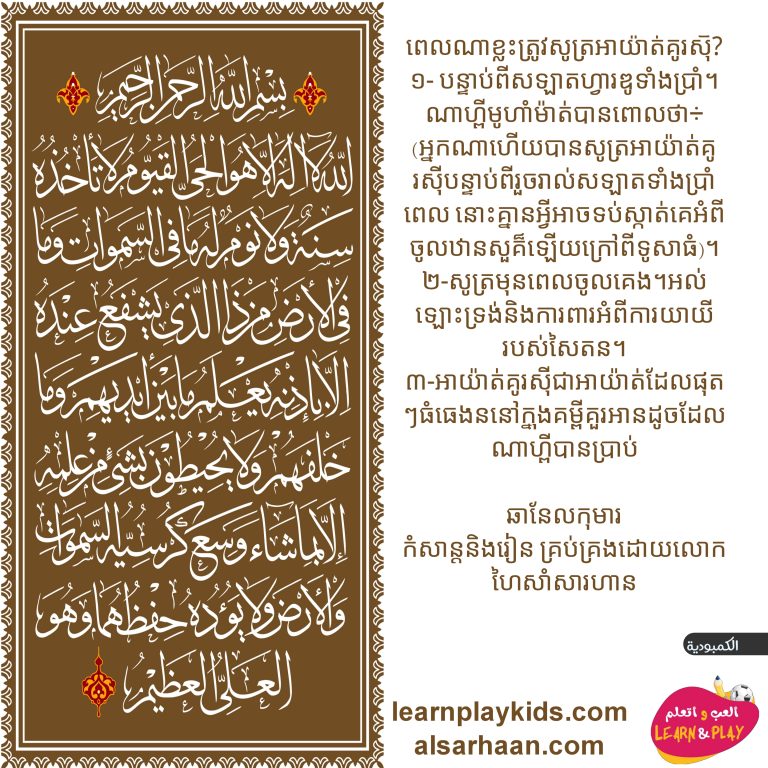 بسم الله الرحمن الرحيم
الله لا إله إلا هو الحي القيوم لا تأخذه
سنة ولا نوم له ما في السموات وما
في الأرض من ذا الذي يشفع عنده
إلا بإذنه يعلم ما بين أيديهم وما
خلفهم ولا يحيطون بشيء من علمه
إلا بما شاء وسع كرسيه السموات
والأرض ولا يؤده حفظهما وهو
العلي العظيم
ពេលណាខ្លះត្រូវសូត្រអាយ៉ាត់គូរស៊ី?
១- បន្ទាប់ពីសឡាតហ្វារឌូទាំងប្រាំ។
ណាហ្ពីមូហាំម៉ាត់បានពោលថា÷
(អ្នកណាហើយបានសូត្រអាយ៉ាត់គូ
រស៊ីបន្ទាប់ពីរួចរាល់សឡាតទាំងប្រាំ
ពេល នោះគ្នានអ្វីអាចទប់ស្កាត់គេអំពី
ចូលឋានសួគ៏ឡើយក្រៅពីទូសាធំ)។
២-សូត្រមុនពេលចូលគេង។អល់
ឡោះទ្រង់និងការពារអំពីការយាយី
របស់សៃតន។
៣-អាយ៉ាត់គូរស៊ីជាអាយ៉ាត់ដែលផុត
ៗធំធេងននៅក្នុងគម្ពីគួរអានដូចដែល
ណាហ្ពីបានប្រាប់
ឆានែលកុមារ
កំសាន្តនិងរៀន គ្រប់គ្រងដោយលោក
ហៃសាំសារហាន
الكمبودية
learnplaykids.com
alsarhaan.com
العب و اتعلم
LEARN & PLAY